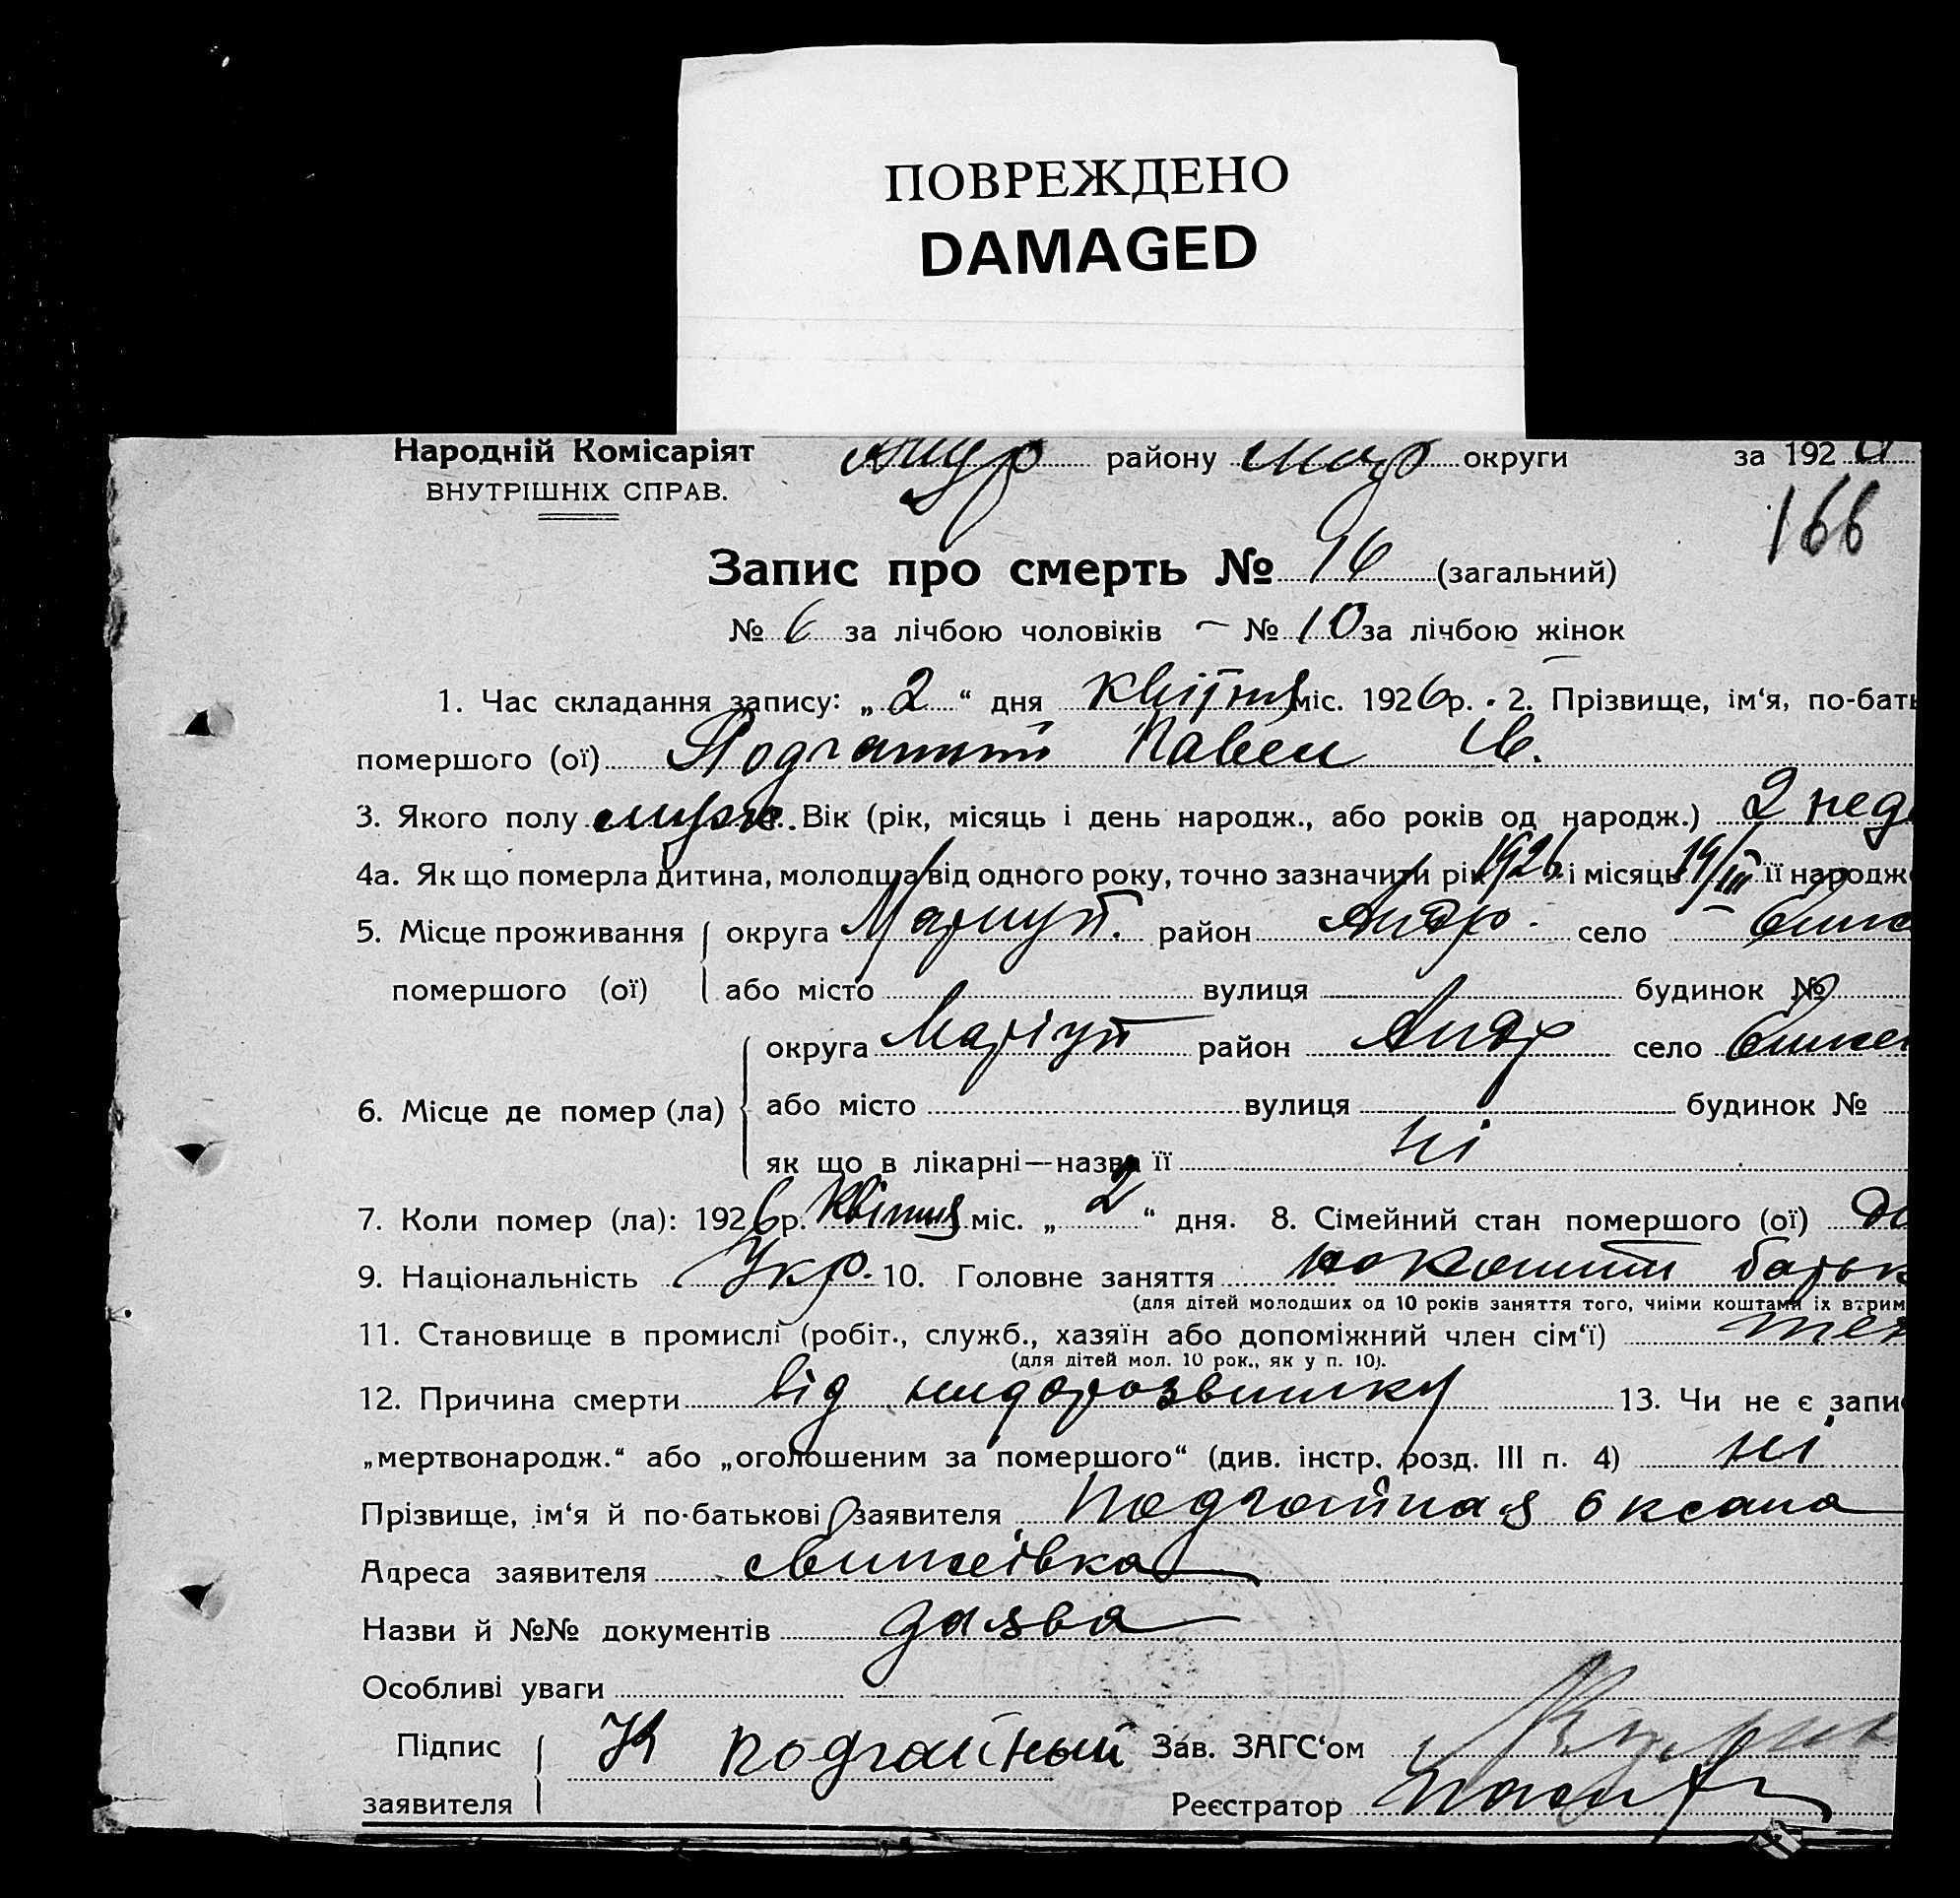 ПОВРЕЖДЕНО
DAMAGED
Народній Комісаріят району округи за 192
ВНУТРІШНІХ СПРАВ.
166
Запис про смерть № 16 (загальний)
№ 6 за лічбою чоловіків — № 10 за лічбою жінок
1. Час складання запису: „ 2 “ дня квітня міс. 1926 р. 2. Прізвище, ім‘я, по-бать
помершого (ої) Павел Ів.
3. Якого полу муж. Вік (рік, місяць і день народж., або років од народж.) 2 нед
4а. Як що померла дитина, молодша від одного року, точно зазначити рік 1926 і місяць 19/III її народж
5. Місце проживання округа Маріуп. район Андр. село
помершого (ої) або місто вулиця будинок №
округа Маріуп район Андр село
6. Місце де помер (ла) або місто вулиця будинок №
як що в лікарні—назва її ні
7. Коли помер (ла): 1926 р. квітня міс. „ 2 “ дня. 8. Сімейний стан помершого (ої)
9. Національність Укр. 10. Головне заняття батьк
(для дітей молодших од 10 років заняття того, чиіми коштами іх втрим
11. Становище в промислі (робіт., служб., хазяїн або допоміжний член сім‘ї)
(для дітей мол. 10 рок., як у п. 10).
12. Причина смерти від 13. Чи не є запи
„мертвонародж.“ або „оголошеним за помершого“ (див. інстр. розд. III п. 4) ні
Прізвище, ім‘я й по-батькові заявителя Подгайная Оксана
Адреса заявителя
Назви й №№ документів заява
Особливі уваги
Підпис Подгайный Зав. ЗАГС‘ом
заявителя Реєстратор